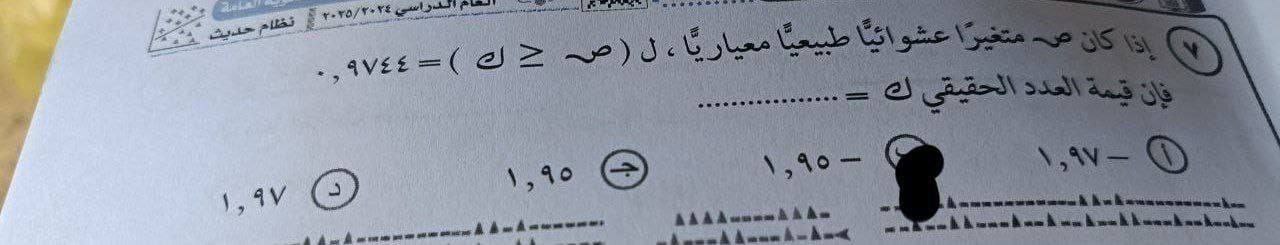 العامة
العام الدراسي ٢٠٢٥/٢٠٢٤ نظام حديث
٧ إذا كان صـ متغيرًا عشوائيًّا طبيعيًّا معياريًّا ، ل ( صـ ≤ ك ) = ٠,٩٧٤٤
فإن قيمة العدد الحقيقي ك = ..................
أ −١,٩٧ −١,٩٥ جـ ١,٩٥ د ١,٩٧